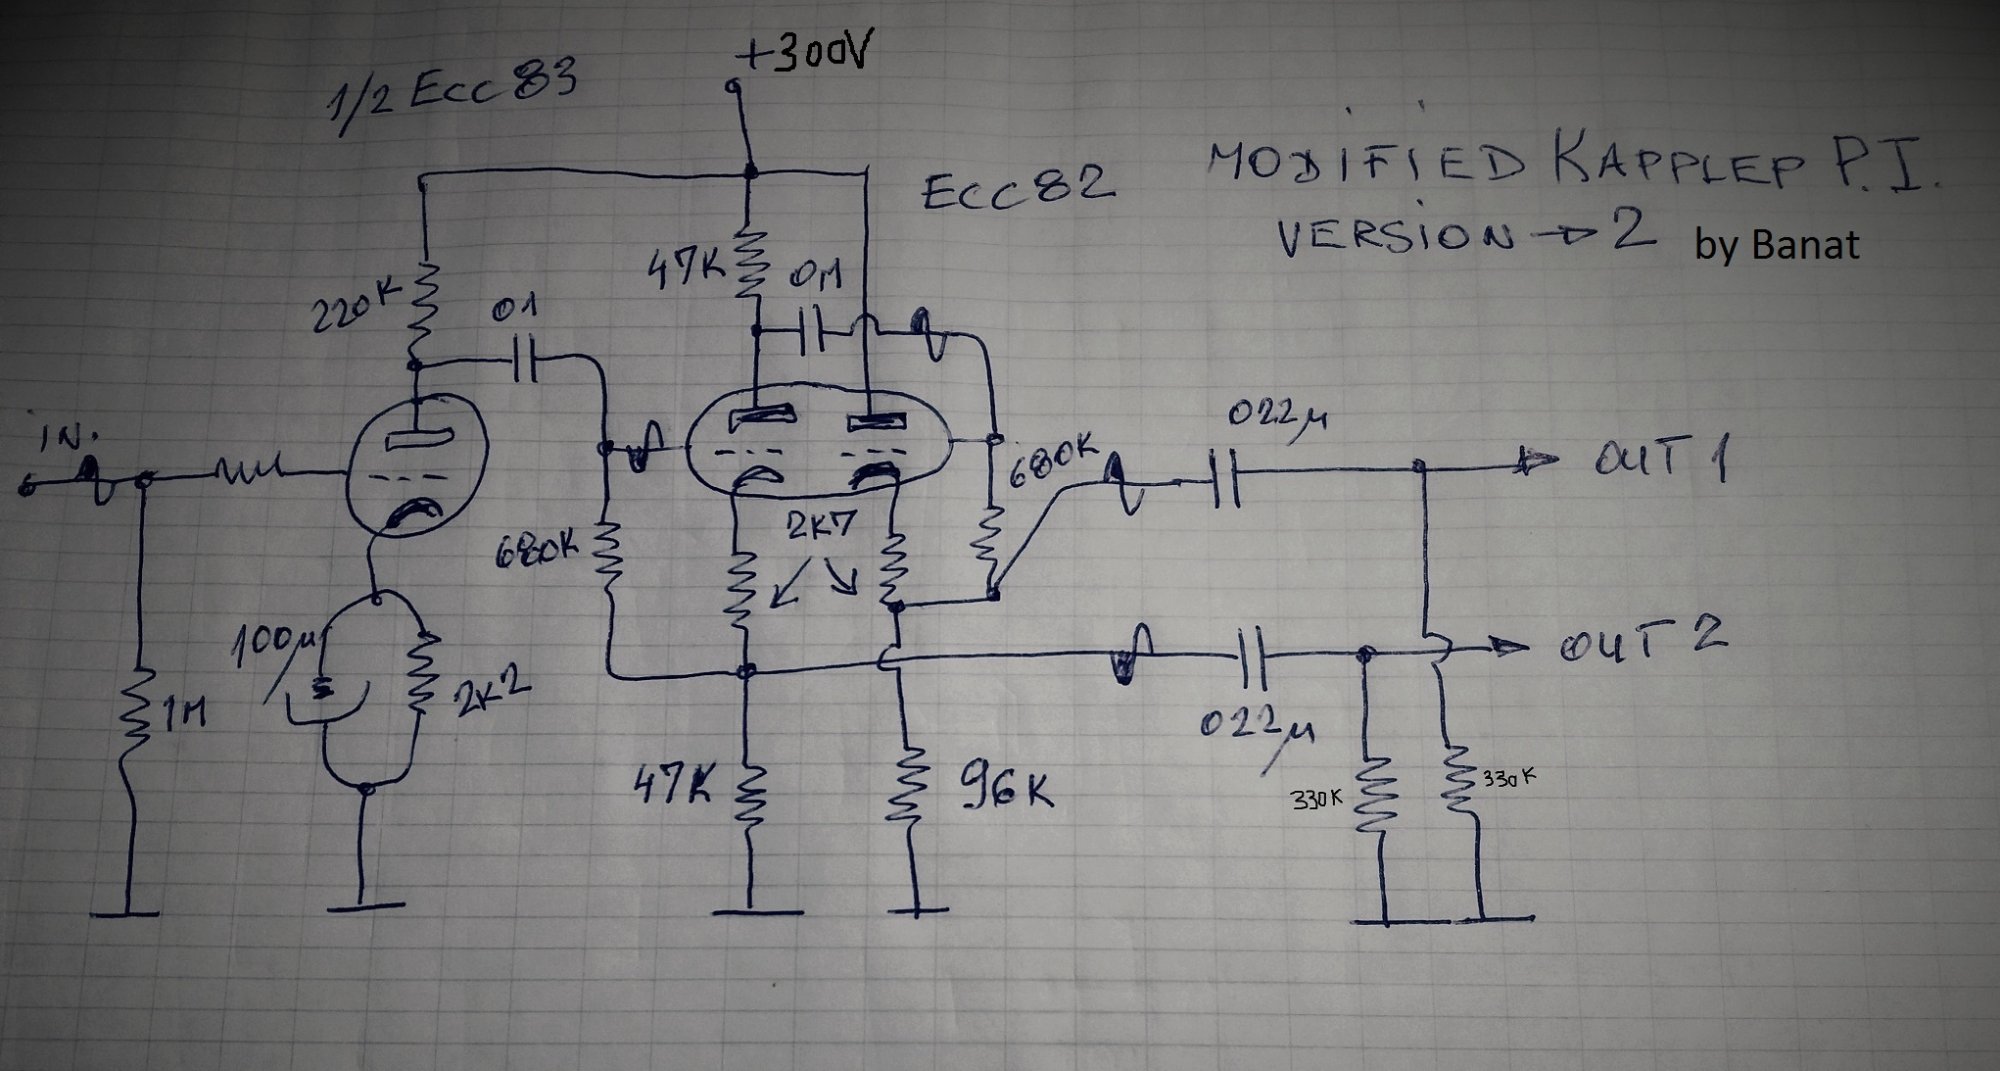 +300V
1/2 Ecc83
Ecc82
MODIFIED KAPPLER P.I.
VERSION → 2 by Banat
47K
220K
01
IN.
022μ
OUT 1
680K
2K7
680K
100μ
2K2
1M
OUT 2
022μ
47K
96K
330K
330K